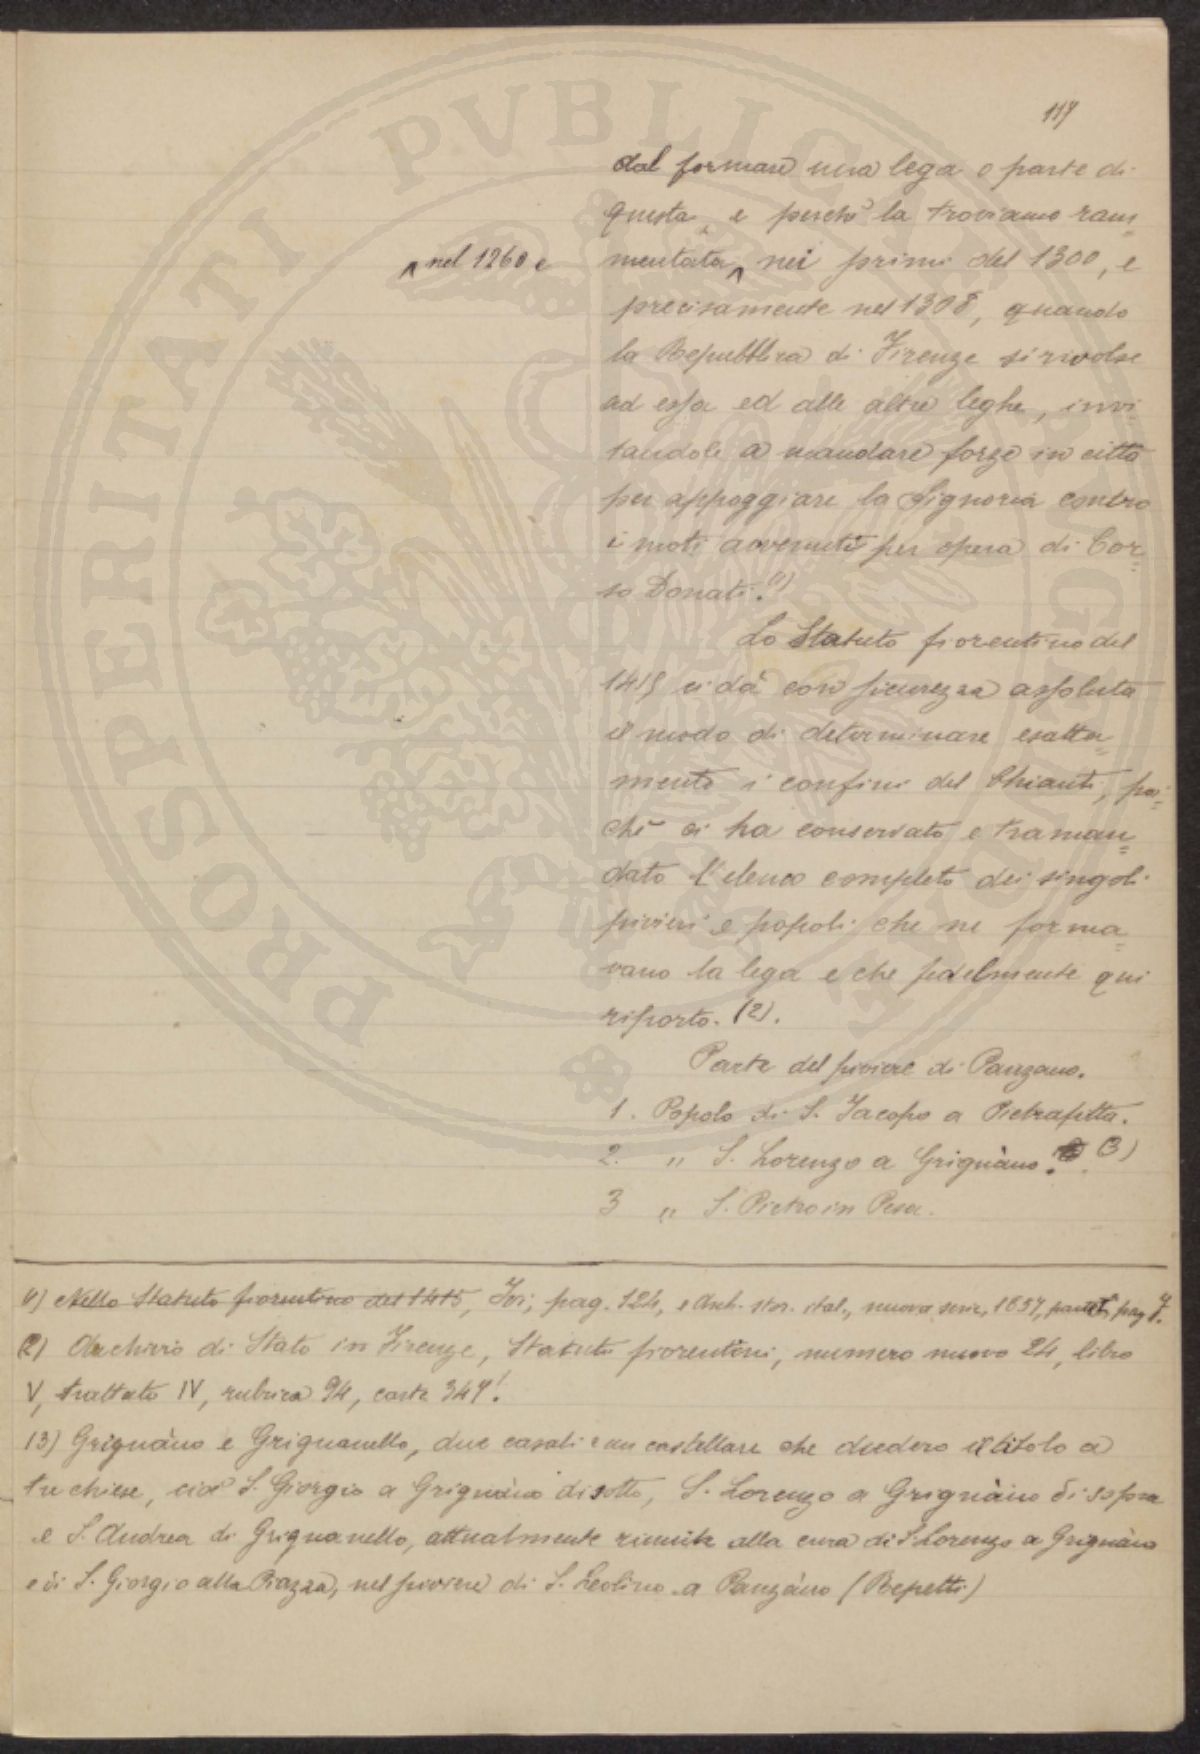 117
dal formare una lega o parte di
questa, e perchè la troviamo ram=
mentata ^ nei primi del 1300, e
^ nel 1260 e
precisamente nel 1308, quando
la Repubblica di Firenze si rivolse
ad essa ed alle altre leghe, invi=
tandole a mandare forze in città
per appoggiare la Signoria contro
i moti avvenuti per opera di Cor=
so Donati.(1)
Lo Statuto fiorentino del
1415 ci dà con sicurezza assoluta
il modo di determinare esatta=
mente i confini del Chianti, poi=
chè ci ha conservato e traman=
dato l'elenco completo dei singoli
pivieri e popoli che ne forma=
vano la lega e che fedelmente qui
riporto. (2).
Parte del piviere di Panzano.
1. Popolo di S. Jacopo a Pietrafitta.
2. " S. Lorenzo a Grignàno. (3)
3 " S. Pietro in Pesa.
(1) Nello Statuto fiorentino del 1415, Ivi, pag. 124, e Arch. stor. ital., nuova serie, 1857, pag. 7.
(2) Archivio di Stato in Firenze, Statuti fiorentini, numero nuovo 24, libro
V, trattato IV, rubrica 94, carte 347!.
(3) Grignàno e Grignanello, due casali e un castellare che diedero il titolo a
tre chiese, cioè S. Giorgio a Grignàno di sotto, S. Lorenzo a Grignàno di sopra
e S. Andrea di Grignanello, attualmente riunite alla cura di S. Lorenzo a Grignàno
e di S. Giorgio alla Piazza, nel piviere di S. Leolino a Panzàno (Repetti)
PROSPERITATI PVBLICAE